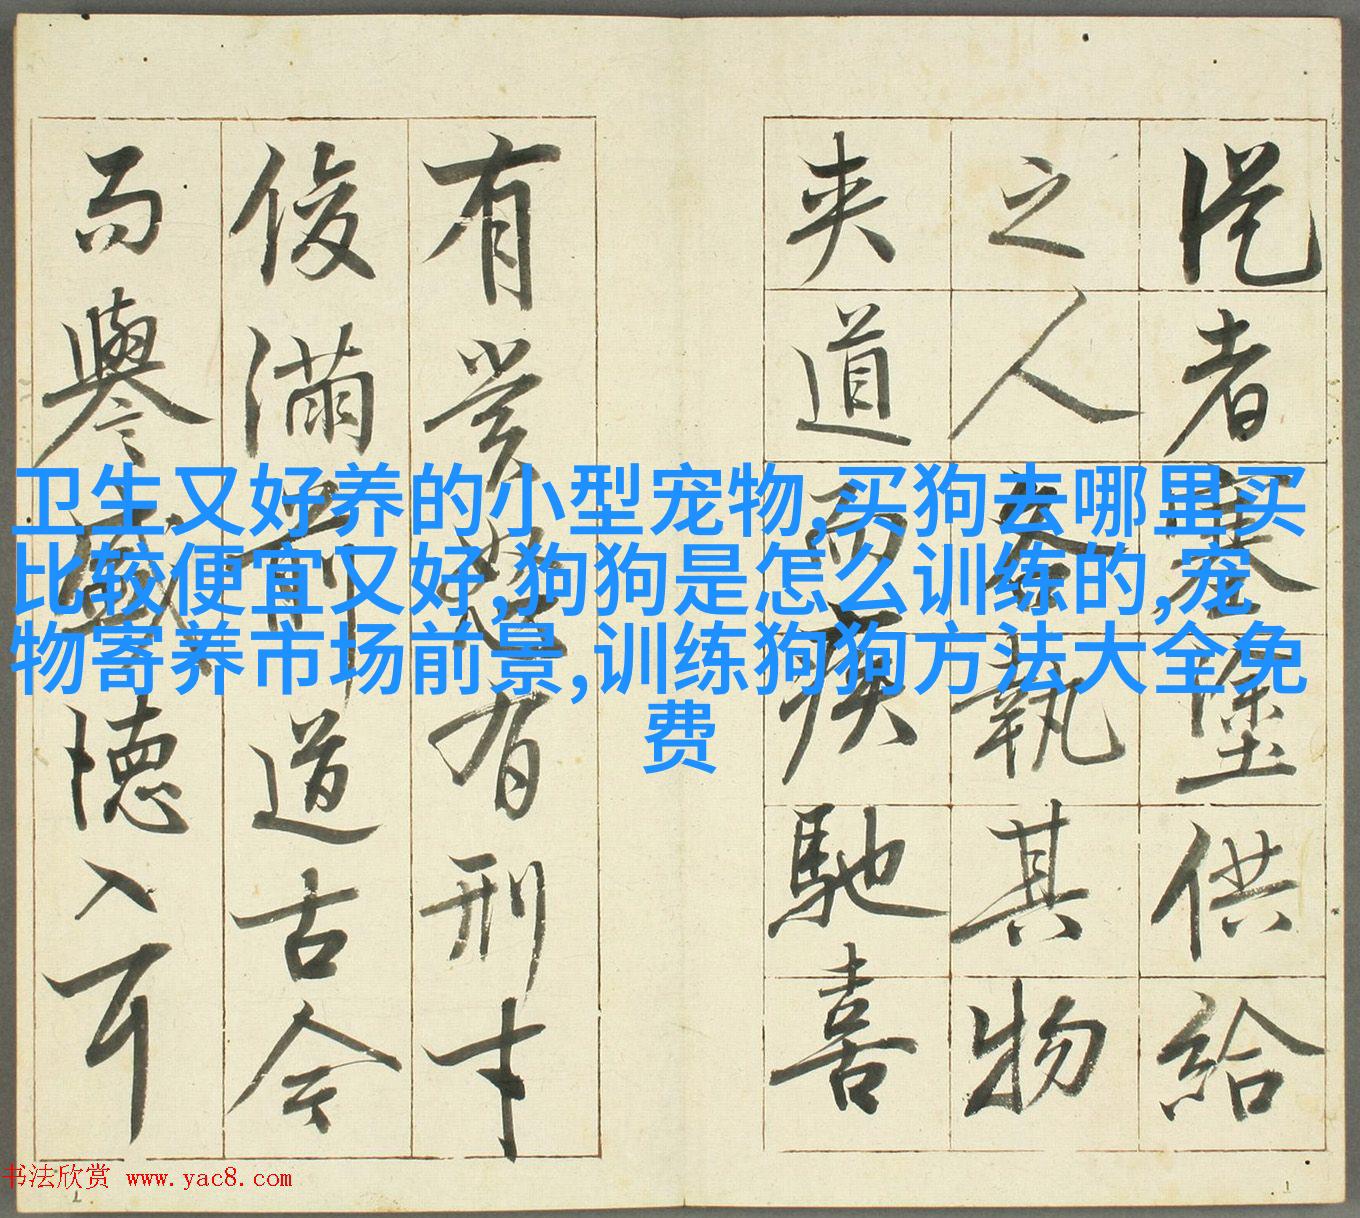 從者塞塗供給
之人各執其物
夾道而疾馳喜
有賞怒有刑才
俊滿前道古今
而譽盛德入耳
卫生又好养的小型宠物,买狗去哪里买
比较便宜又好,狗狗是怎么训练的,宠
物寄养市场前景,训练狗狗方法大全免
费
书法欣赏 www.yac8.com